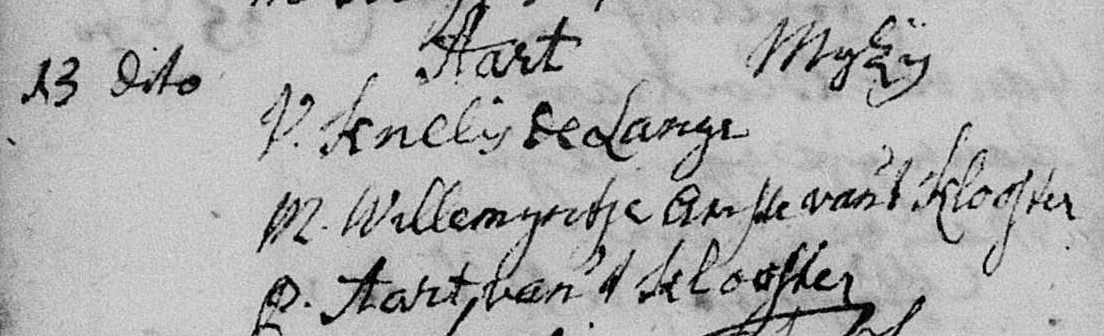 13 dito Aart
V. Knelis de Lange
M. Willemyntje van't Klooster
P. Aart, van't Klooster